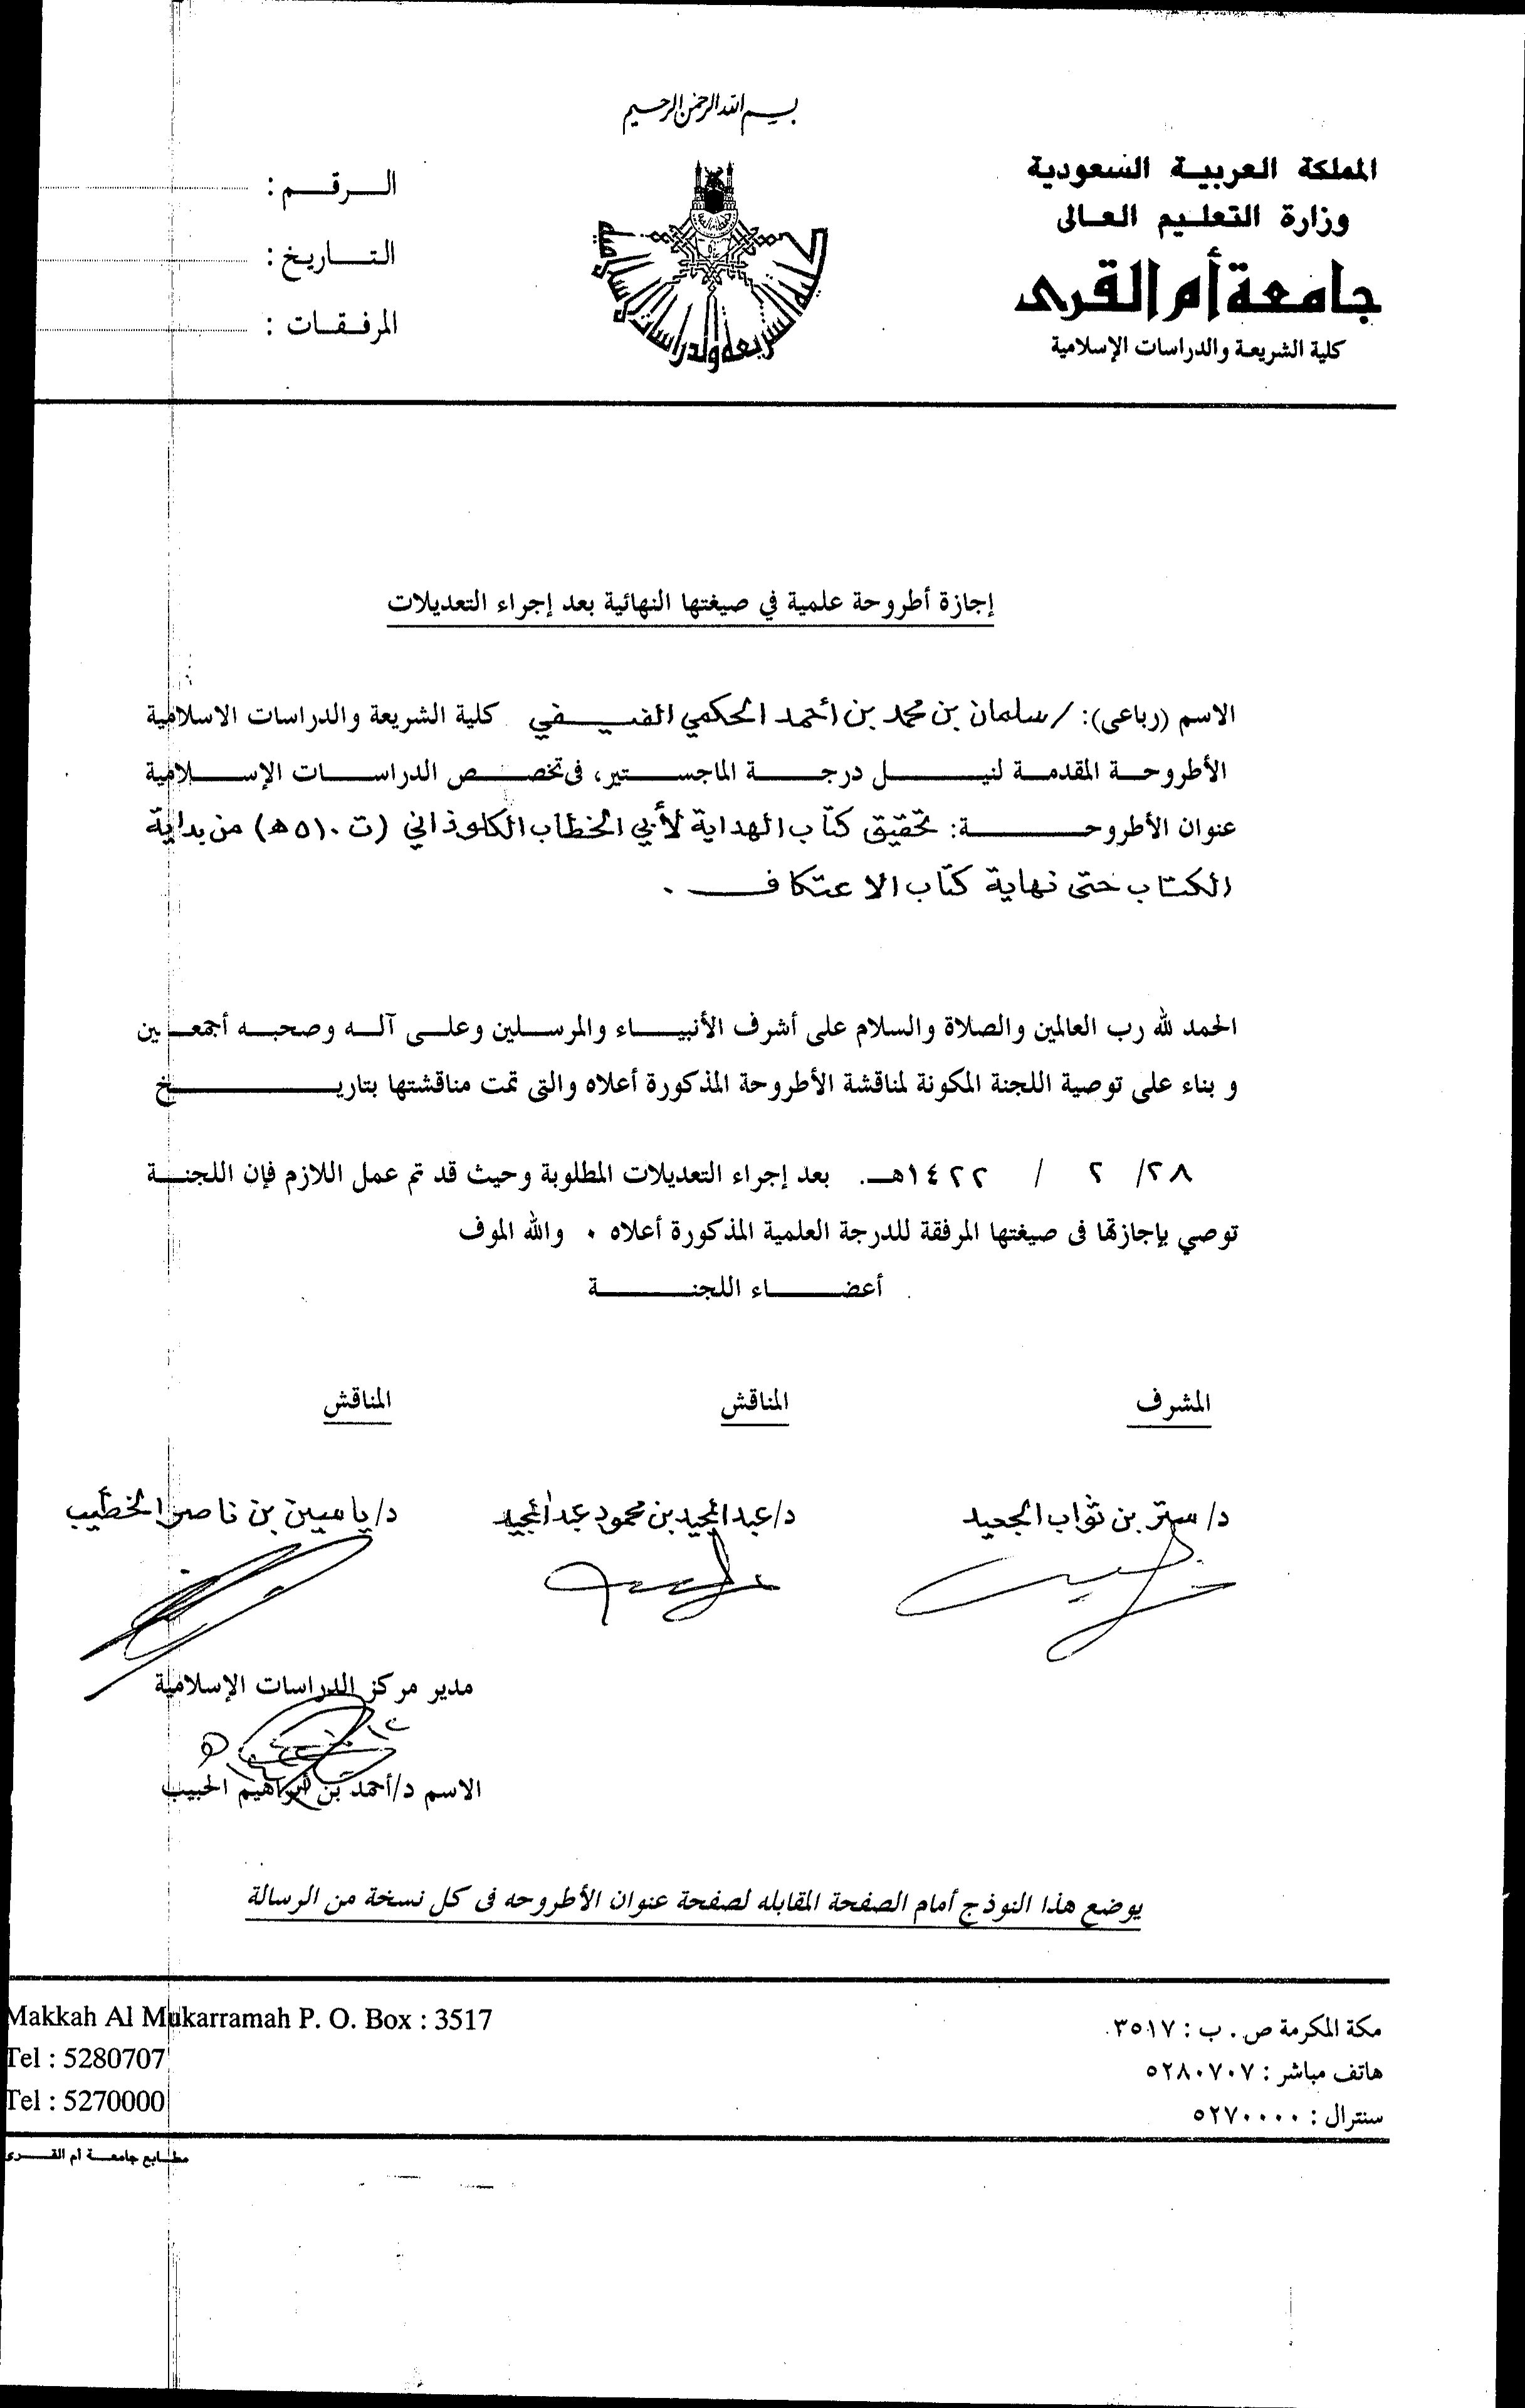 بسم الله الرحمن الرحيم
المملكة العربية السعودية
وزارة التعليم العالى
جامعة أم القرى
كلية الشريعة والدراسات الإسلامية
الرقم :
التاريخ :
المرفقات :
إجازة أطروحة علمية في صيغتها النهائية بعد إجراء التعديلات
الاسم (رباعى): / سلمان بن محمد بن أحمد الحكمي الفيفي كلية الشريعة والدراسات الاسلامية
الأطروحة المقدمة لنيل درجة الماجستير، فى تخصص الدراسات الإسلامية
عنوان الأطروحة: تحقيق كتاب الهداية لأبي الخطاب الكلوذاني (ت ٥١٠ هـ) من بداية
الكتاب حتى نهاية كتاب الاعتكاف .
الحمد لله رب العالمين والصلاة والسلام على أشرف الأنبياء والمرسلين وعلى آله وصحبه أجمعين
و بناء على توصية اللجنة المكونة لمناقشة الأطروحة المذكورة أعلاه والتى تمت مناقشتها بتاريخ
٢٨/ ٢ / ١٤٢٢هـ. بعد إجراء التعديلات المطلوبة وحيث قد تم عمل اللازم فإن اللجنة
توصي بإجازتها فى صيغتها المرفقة للدرجة العلمية المذكورة أعلاه ٠ والله الموف
أعضاء اللجنة
المشرف المناقش المناقش
د/ ستر بن ثواب الجعيد د/ عبدالمجيد بن محمود عبدالمجيد د/ ياسين بن ناصر الخطيب
مدير مركز الدراسات الإسلامية
الاسم د/أحمد بن إبراهيم الحبيب
يوضع هذا النوذج أمام الصفحة المقابله لصفحة عنوان الأطروحه فى كل نسخة من الرسالة
مكة المكرمة ص . ب : ٣٥١٧
هاتف مباشر : ٥٢٨٠٧٠٧
سنترال : ٥٢٧٠٠٠٠
Makkah Al Mukarramah P. O. Box : 3517
Tel : 5280707
Tel : 5270000
مطابع جامعة أم القرى